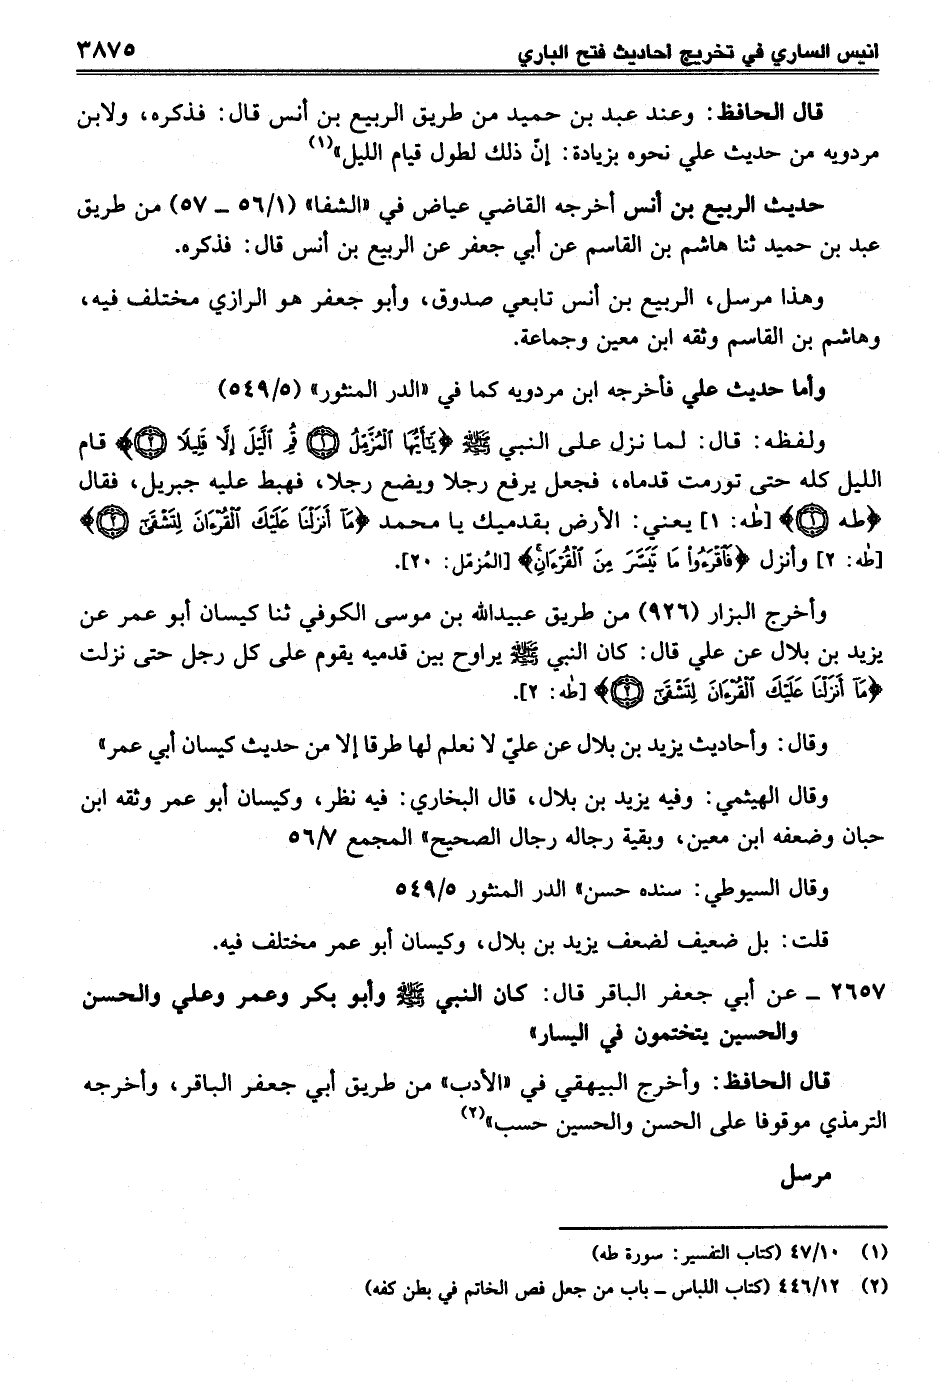 أنيس الساري في تخريج أحاديث فتح الباري ٣٨٧٥
قال الحافظ: وعند عبد بن حميد من طريق الربيع بن أنس قال: فذكره، ولابن
مردويه من حديث علي نحوه بزيادة: إنّ ذلك لطول قيام الليل»(١)
حديث الربيع بن أنس أخرجه القاضي عياض في «الشفا» (٥٦/١ ـ ٥٧) من طريق
عبد بن حميد ثنا هاشم بن القاسم عن أبي جعفر عن الربيع بن أنس قال: فذكره.
وهذا مرسل، الربيع بن أنس تابعي صدوق، وأبو جعفر هو الرازي مختلف فيه،
وهاشم بن القاسم وثقه ابن معين وجماعة.
وأما حديث علي فأخرجه ابن مردويه كما في «الدر المنثور» (٥٤٩/٥)
ولفظه: قال: لما نزل على النبي ﷺ ﴿يَٰٓأَيُّهَا ٱلْمُزَّمِّلُ ۝١ قُمِ ٱلَّيْلَ إِلَّا قَلِيلًا ۝٢﴾ قام
الليل كله حتى تورمت قدماه، فجعل يرفع رجلا ويضع رجلا، فهبط عليه جبريل، فقال
﴿طه ۝١﴾ [طٰه: ١] يعني: الأرض بقدميك يا محمد ﴿مَآ أَنزَلْنَا عَلَيْكَ ٱلْقُرْءَانَ لِتَشْقَىٰٓ ۝٢﴾
[طٰه: ٢] وأنزل ﴿فَٱقْرَءُوا۟ مَا تَيَسَّرَ مِنَ ٱلْقُرْءَانِۚ﴾ [المُزمّل: ٢٠].
وأخرج البزار (٩٢٦) من طريق عبيدالله بن موسى الكوفي ثنا كيسان أبو عمر عن
يزيد بن بلال عن علي قال: كان النبي ﷺ يراوح بين قدميه يقوم على كل رجل حتى نزلت
﴿مَآ أَنزَلْنَا عَلَيْكَ ٱلْقُرْءَانَ لِتَشْقَىٰٓ ۝٢﴾ [طٰه: ٢].
وقال: وأحاديث يزيد بن بلال عن عليّ لا نعلم لها طرقا إلا من حديث كيسان أبي عمر»
وقال الهيثمي: وفيه يزيد بن بلال، قال البخاري: فيه نظر، وكيسان أبو عمر وثقه ابن
حبان وضعفه ابن معين، وبقية رجاله رجال الصحيح» المجمع ٥٦/٧
وقال السيوطي: سنده حسن» الدر المنثور ٥٤٩/٥
قلت: بل ضعيف لضعف يزيد بن بلال، وكيسان أبو عمر مختلف فيه.
٢٦٥٧ ـ عن أبي جعفر الباقر قال: كان النبي ﷺ وأبو بكر وعمر وعلي والحسن
والحسين يتختمون في اليسار»
قال الحافظ: وأخرج البيهقي في «الأدب» من طريق أبي جعفر الباقر، وأخرجه
الترمذي موقوفا على الحسن والحسين حسب»(٢)
مرسل
(١) ٤٧/١٠ (كتاب التفسير: سورة طه)
(٢) ٤٤٦/١٢ (كتاب اللباس ـ باب من جعل فص الخاتم في بطن كفه)